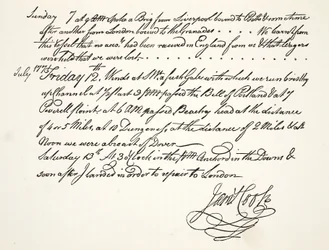 Sunday 7 at 9 AM spoke a Brig from Liverpool bound to Porto
after another from London bound to the Granades . . . . We learnt from
this Vessel that no acct had been received in England from us & that Wagers
were held that we were lost . . . . . . . . . .
July 1771
Friday 12. Winds at SW a fresh gale with which we run briskly
up Channel at past 3 PM pass'd the Bill of Portland & at 7
Peverell point, at 6 AM pass'd Beachy head at the distance
of 4 or 5 Miles, at 10 Dungeness at the distance of 2 Miles & at
Noon we were abreast of Dover
Saturday 13th At 3 oClock in the PM Anchor'd in the Downs &
soon after I landed in order to repair to London
Jams Cook